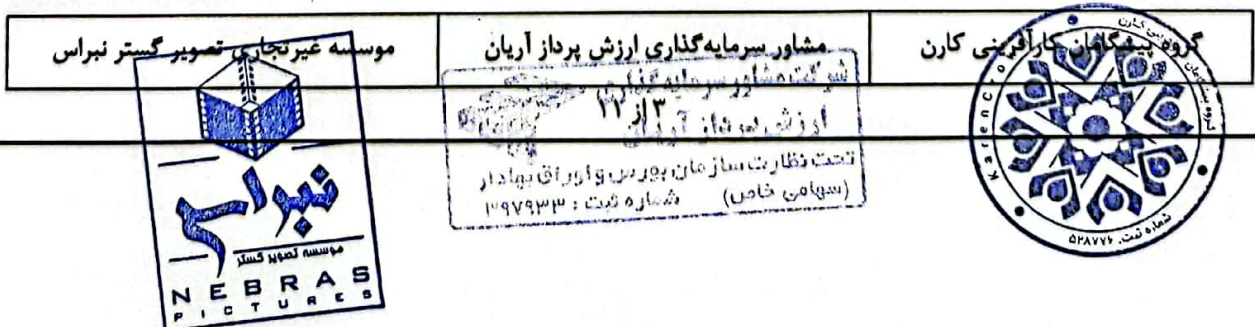 گروه پیشگامان کارآفرینی کارن
مشاور سرمایه‌گذاری ارزش پرداز آریان
موسسه غیرتجاری تصویر گستر نبراس
۳ از ۱۱
شرکت مشاور سرمایه گذاری
ارزش پرداز آریان
تحت نظارت سازمان بورس و اوراق بهادار
(سهامی خاص) شماره ثبت : ۳۹۷۹۳۳
نبراس
موسسه تصویر گستر
NEBRAS
PICTURES
Karen Co
شماره ثبت. ۵۲۸۷۷۶